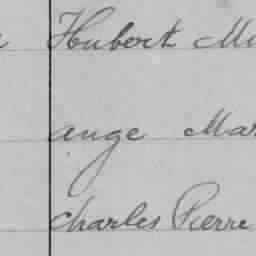 Hubert
ange Mar
charles Pierre